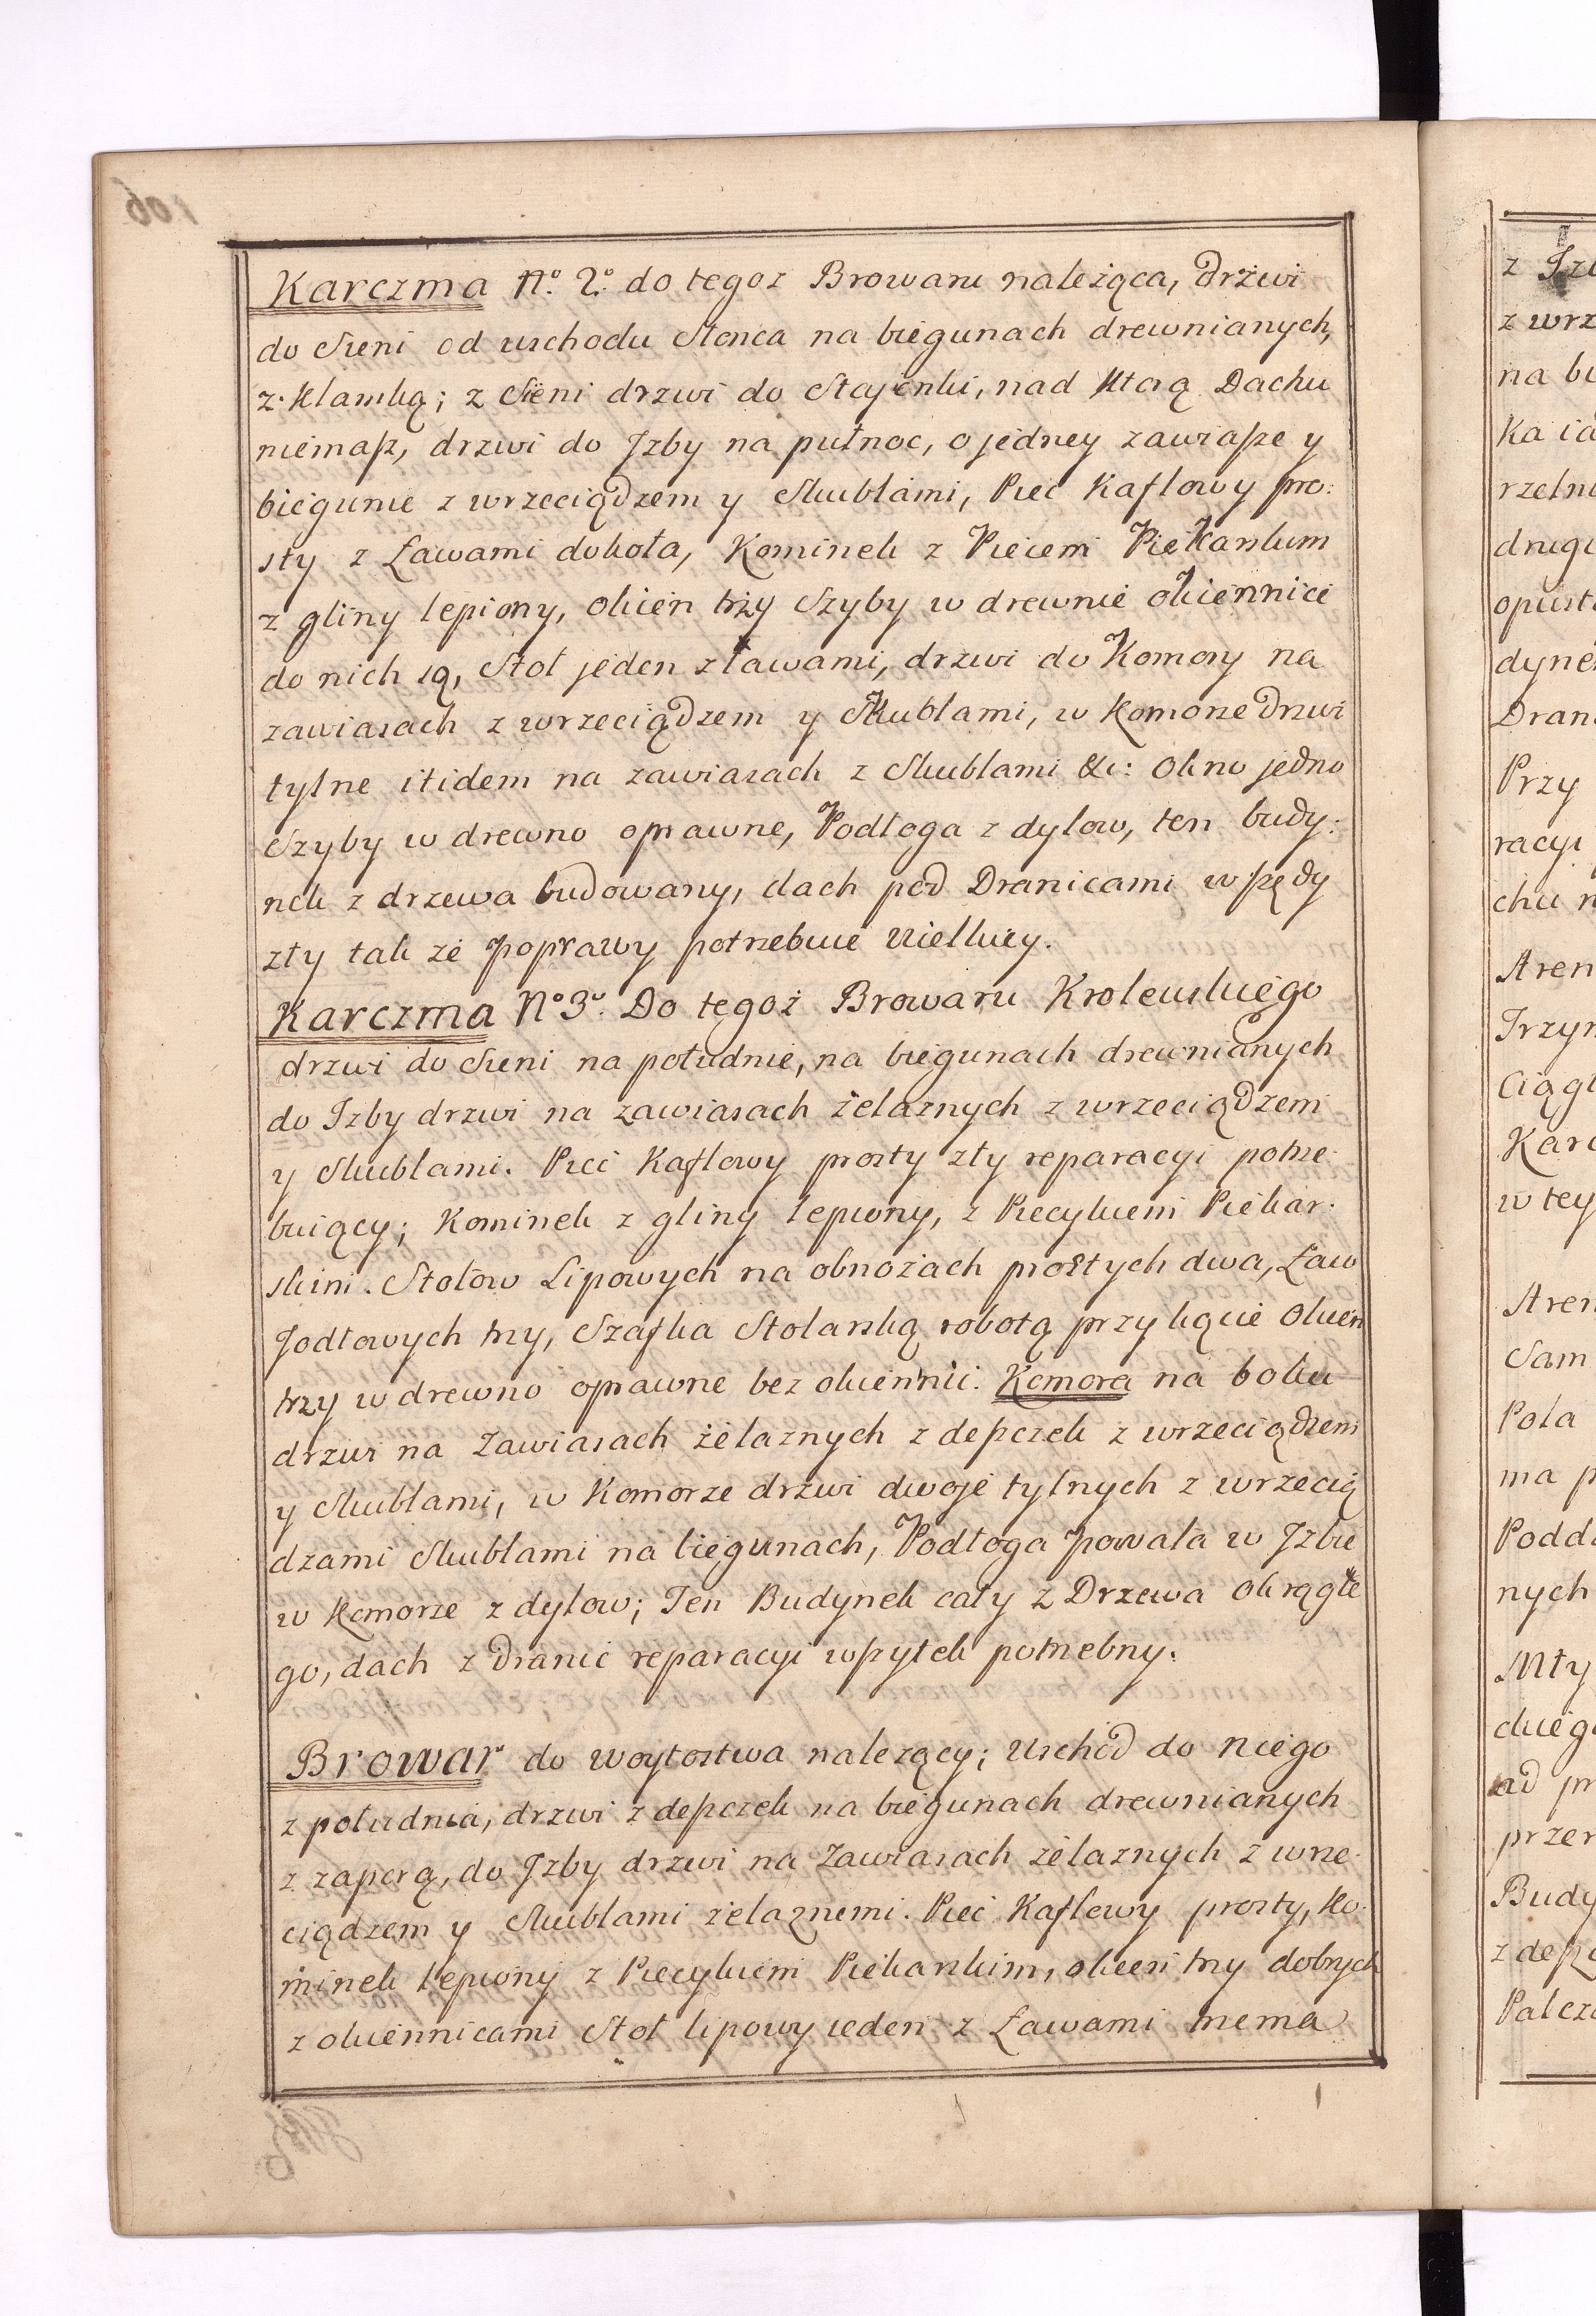 Karczma No. 2o. do tegoz Browaru należąca, drżwi
do Sieni od wschodu Słonca na biegunach drewnianych,
z Klamką; z Sieni drzwi do Stajenki, nad Ktorą Dachu
niemasz, drzwi do Jzby na pułnoc, o jedney zawiasze y
biegunie z wrzeciądzem y Skublami, Piec Kaflowy pro:
sty z Ławami dokoła, Kominek z Piecem Piekarskim
z gliny lepiony, okien trży Szyby w drewnie okiennice
do nich są, Stoł jeden z ławami, drzwi do Komory na
zawiasach z wrzeciądzem y Skublami, w Komorze drzwi
tylne itidem na zawiasach z Skublami &c: Okno jedno
Szyby w drewno oprawne, Podłoga z dylow, ten budy:
nek z drzewa budowany, dach pod Dranicami wszędy
zły tak że poprawy potrzebuie Wielkiey.
Karczma No 3o. Do tegoż Browaru Krolewskiego
drzwi do Sieni na południe, na biegunach drewnianych
do Izby drzwi na zawiasach żelaznych z wrzeciądzem
y Skublami. Piec Kaflowy prosty zły reparacyi potrze
buiący; Kominek z gliny lepiony, z Piecykiem Piekar:
skim. Stołow Lipowych na obnożach prostych dwa, Ław
Jodłowych trzy, Szafka Stolarską robotą przy kącie Okien
trzy w drewno oprawne bez okiennic. Komora na boku
drzwi na Zawiasach żelaznych z deszczek z wrzeciądzem
y Skublami, w Komorze drzwi dwoje tylnych z wrzecią
dzami Skublami na biegunach, Podłoga powała w Jzbie
w Komorze z dylow; Ten Budynek cały z Drzewa Okrągłe
go, dach z dranic reparacyi wszytek potrzebny.
Browar do Woytostwa należący; Wschod do niego
z południa, drzwi z deszczek na biegunach drewnianych
z zaporą, do Jzby drzwi na Zawiasach żelaznych z wrze
ciądzem y Skublami żelaznemi. Piec Kaflowy prosty, Ko
minek lepiony z Piecykiem Piekarskim, okien trzy dobrych
z okiennicami Stoł lipowy ieden z Ławami trzema